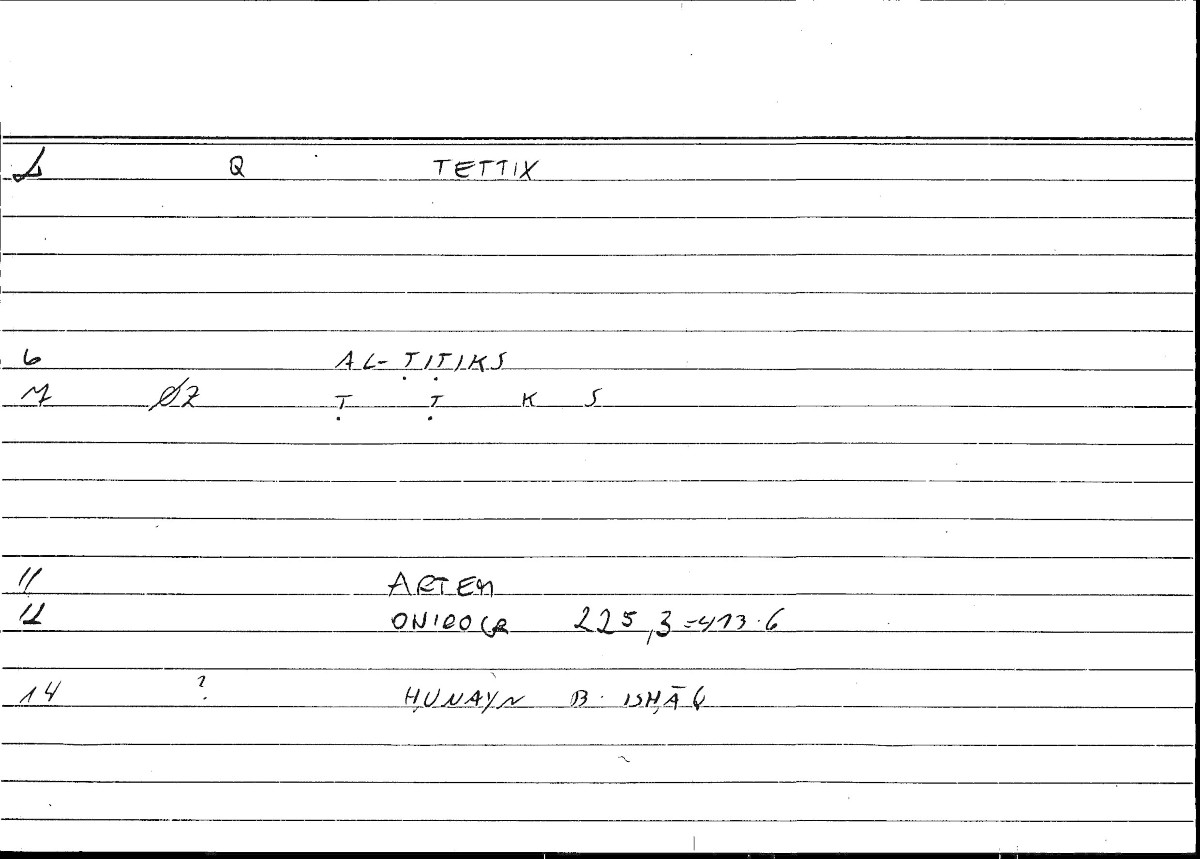 2 Q TETTIX
6 AL-ṬIṬIKS
7 ØZ Ṭ Ṭ K S
11 ARTEM
12 ONIROCR 225,3=413.6
14 ? ḤUNAYN B. ISḤĀQ